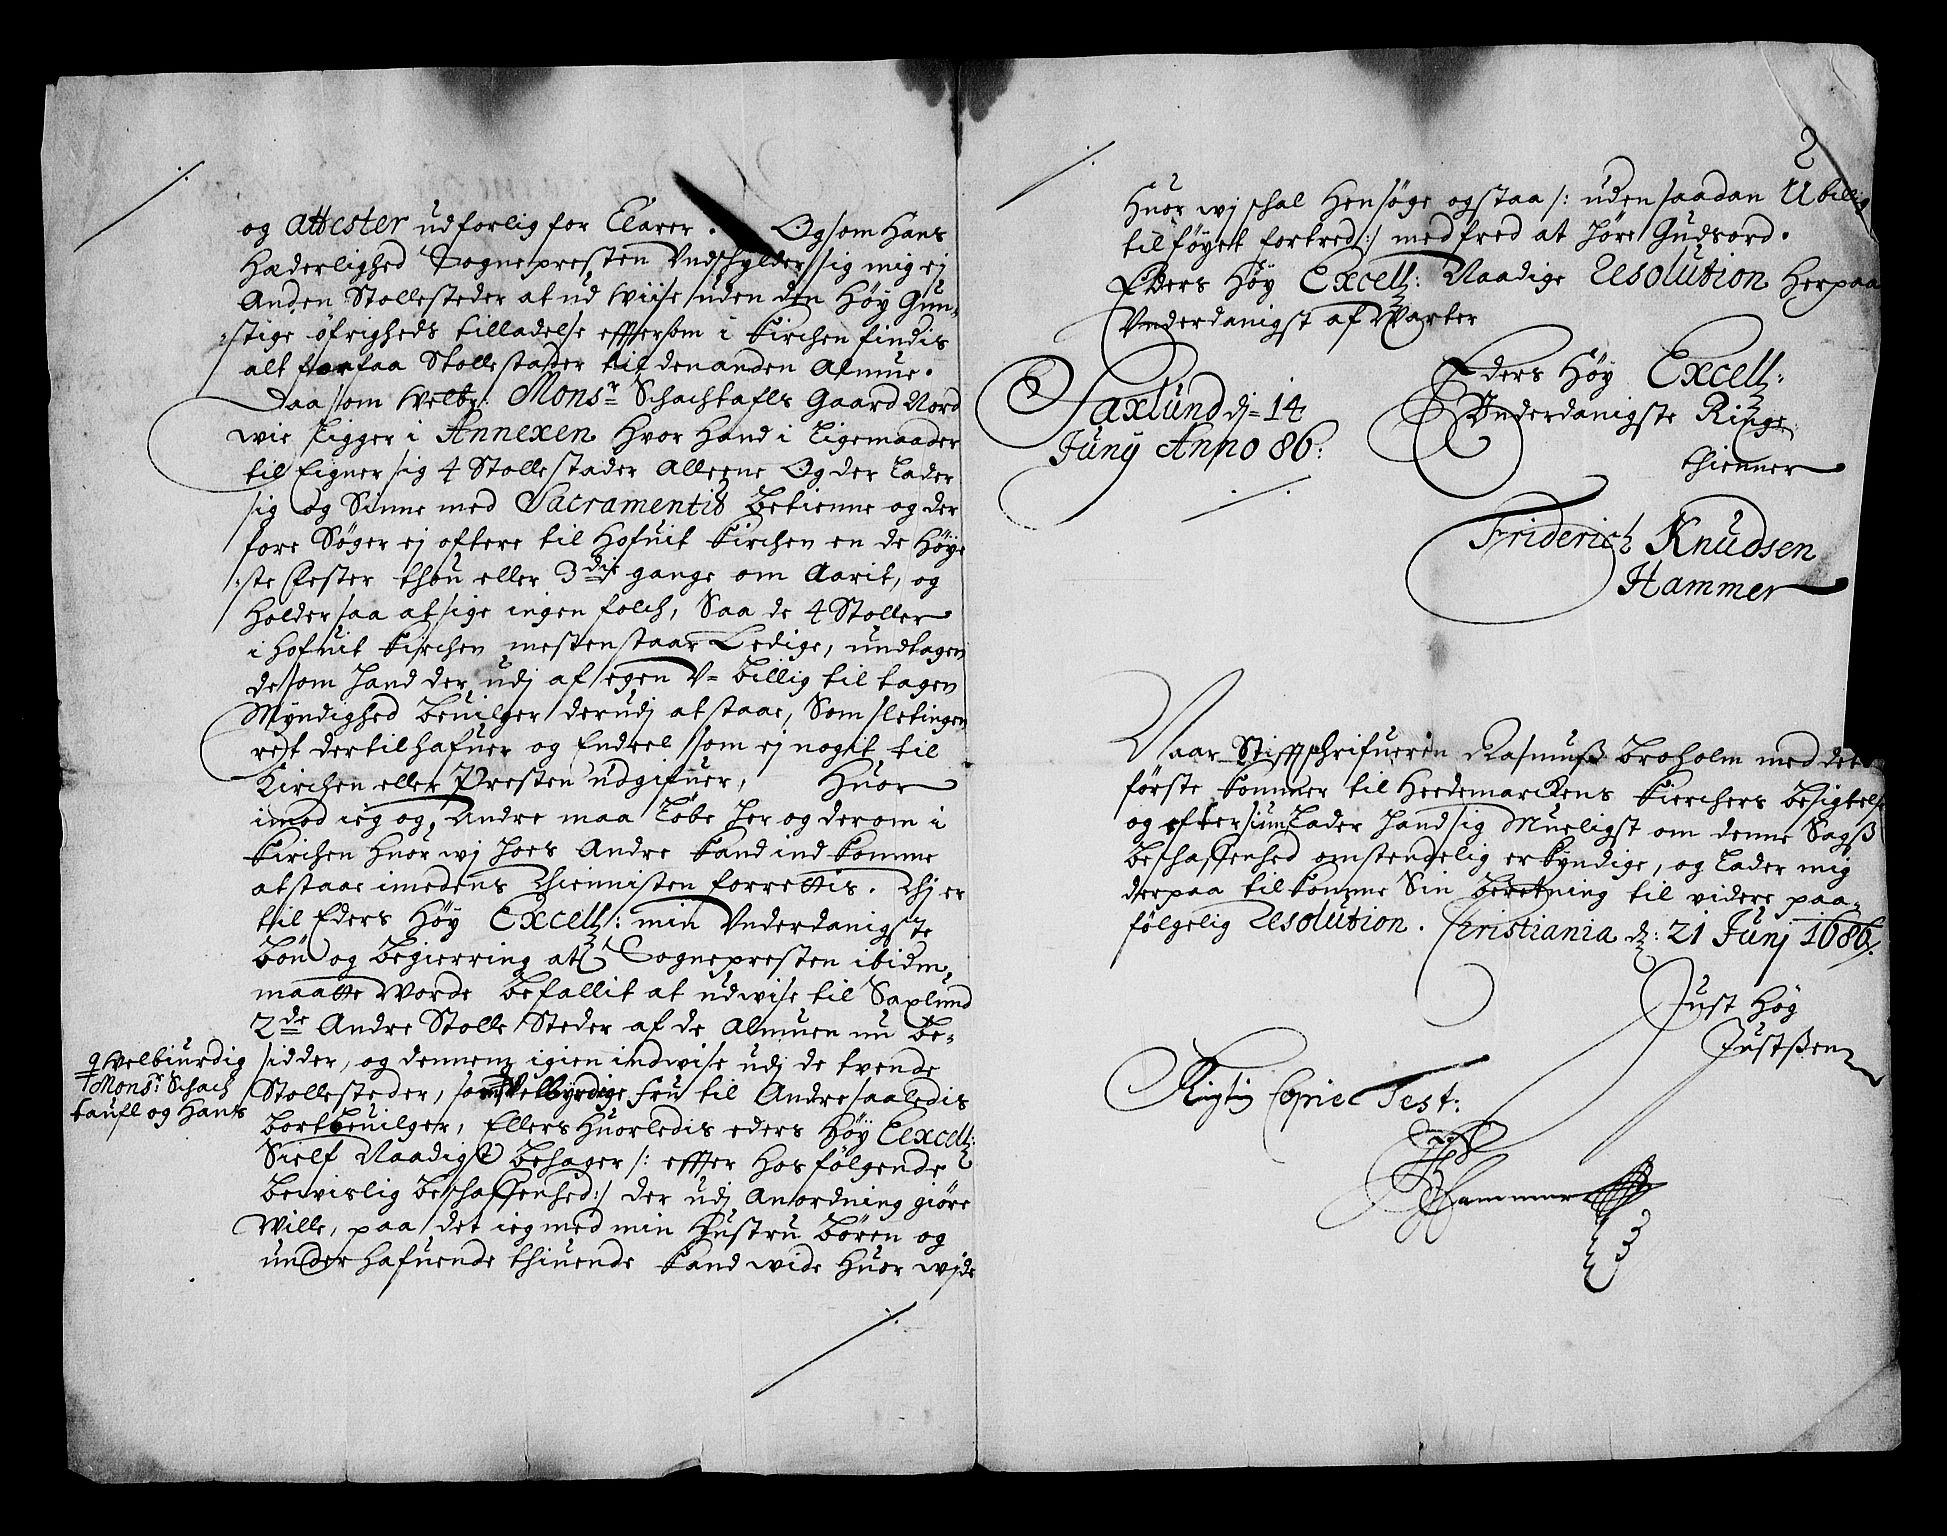 og attester udforlig for Clarer. Og som Hans
Hæderlighed Sognepresten Vndschylder sig mig ej
Anden Stollesteder at ud wiise uden den Høy Gun-
:stige øfrigheds tilladelse effterSom i Kirchen findis
alt for faa Stollestader til den anden Almue.
Daa som Welb: Monsr Schachtafls Gaard Nord
wie ligger i Annexen Hvor Hand i ligemaader
til Eigner sig 4 Stollestader Alleene Og der lader
sig og Sinne med Sacramentid betienne og der
fore Søger ej oftere til Hofuit Kirchen en de Høye
:ste fester thou eller 3die gange om Aarit, og
Holder saa at sige ingen folch, Saa de 4 Stoller
i Hofuit Kirchen mesten staar Ledige, undtagen
de som hand der udj af egen V= billig til tagen
Myndighed beuilger derudj at staae, Som slet ingen
ret dertil hafuer og Endeel som ej nogit til
Kirchen eller Presten udgifuer, Huor
imod ieg og Andre maa løbe her og der om i
Kirchen Huor wj hoes Andre Kand ind Komme
at staae imedens thiennisten forrettis. Thj er
til Eders Høy Excell: min Vnderdanigste
bøn og begierring at Sognepresten ibidm,
maatte worde befallit at udwise til Saxlund
2de Andre Stolle Steder af de Almuen nu be-
sidder, og dennem igien indwise udj de tvende
Stollesteder, som Velbyrdige Fru til Andre saaledis
bortbeuilger, Ellers Huorledis eders Høy Eexcell:
Sielf Naadigst behager /: effter Hosfølgende
bewislig beschaffenhed:/ der udj Anordning giøre
Wille, paa det ieg med min Hustru børen og
underhafuende thiuende Kand wide Huor wj de
Welbiurdig
Monsr Schach
taufl og Hans
2
Huor wj schal Hensøge og staa /: uden saadan Ubillig
tilføyet fortred:/ med fred at høre Gudsord.
Eders Høy Excell: Naadige Resolution Herpaa
Vnderdanigst af Warter
Saxlund dj=14
Junij Anno 86:
Eders Høy Excell:
Vnderdanigste Ringe
thienner
Friderich Knudsen
Hammer
Naar Stifftschrifueren Rasmuß broholm med det
første Kommer til Heedemarckens Kierchers besigtelse
og eftersiun, lader hand sig Mueligst om denne Sags
beschaffenhed omstendelig erkyndige, og lader mig
derpaa tilkomme Sin beretning til videre paa-
følgelig Resolution. Christiania d: 21 Junj 1686.
Just Høg
Justßen
Rigtig Copie Test:
Hammer